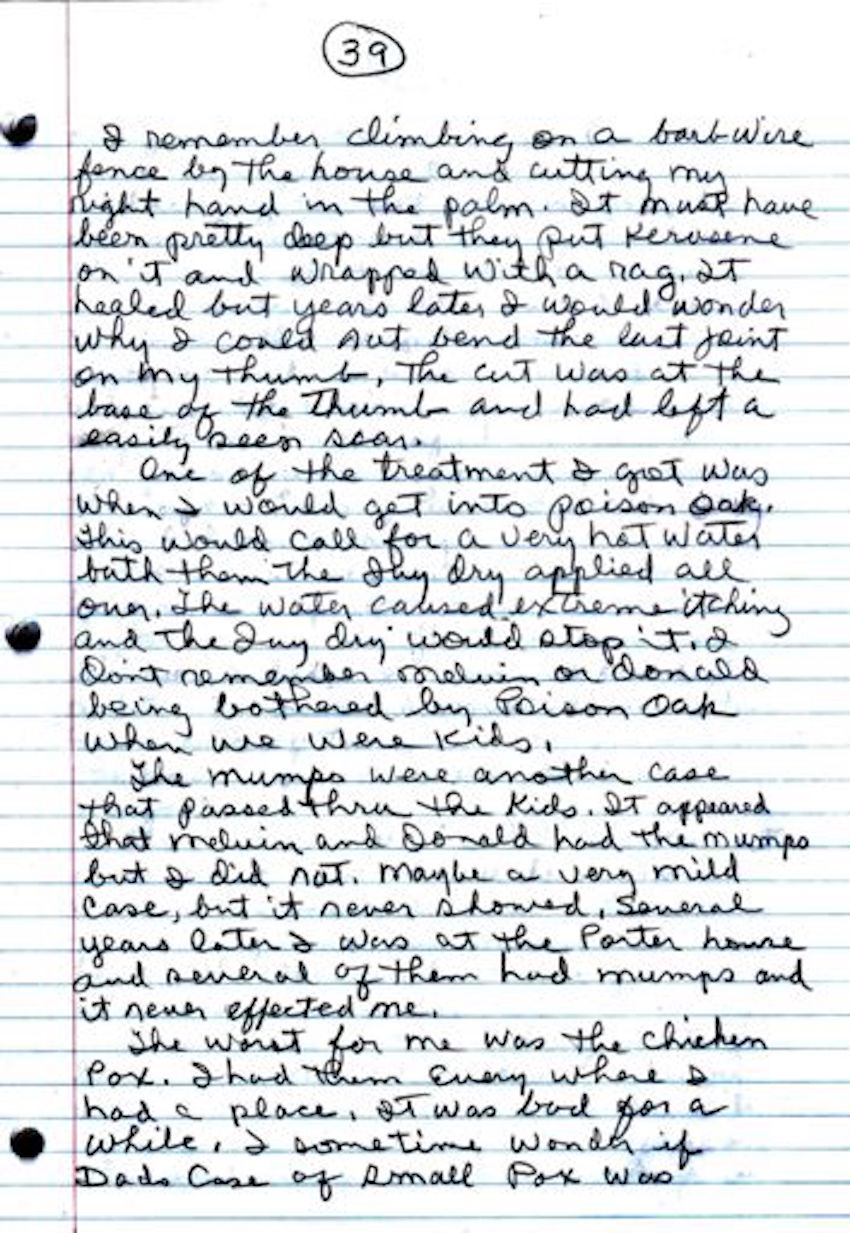 39
I remember climbing on a barb wire
fence by the house and cutting my
right hand in the palm. It must have
been pretty deep but they put Kerosene
on it and wrapped with a rag. It
healed but years later I would wonder
why I could not bend the last joint
on my thumb. The cut was at the
base of the Thumb and had left a
easily seen scar.
One of the treatment I got was
when I would get into poison oak.
This would call for a very hot water
bath then the Ivy dry applied all
over. The water caused extreme itching
and the Ivy dry would stop it. I
Don't remember Melvin or Donald
being bothered by Poison Oak
when we were Kids.
The mumps were another case
that passed thru the Kids. It appeared
that Melvin and Donald had the mumps
but I did not. Maybe a very mild
case, but it never showed. Several
years later I was at the Porter house
and several of them had mumps and
it never effected me.
The worst for me was the chicken
Pox. I had them Every where I
had a place. It was bad for a
while. I sometime wonder if
Dads Case of Small Pox was